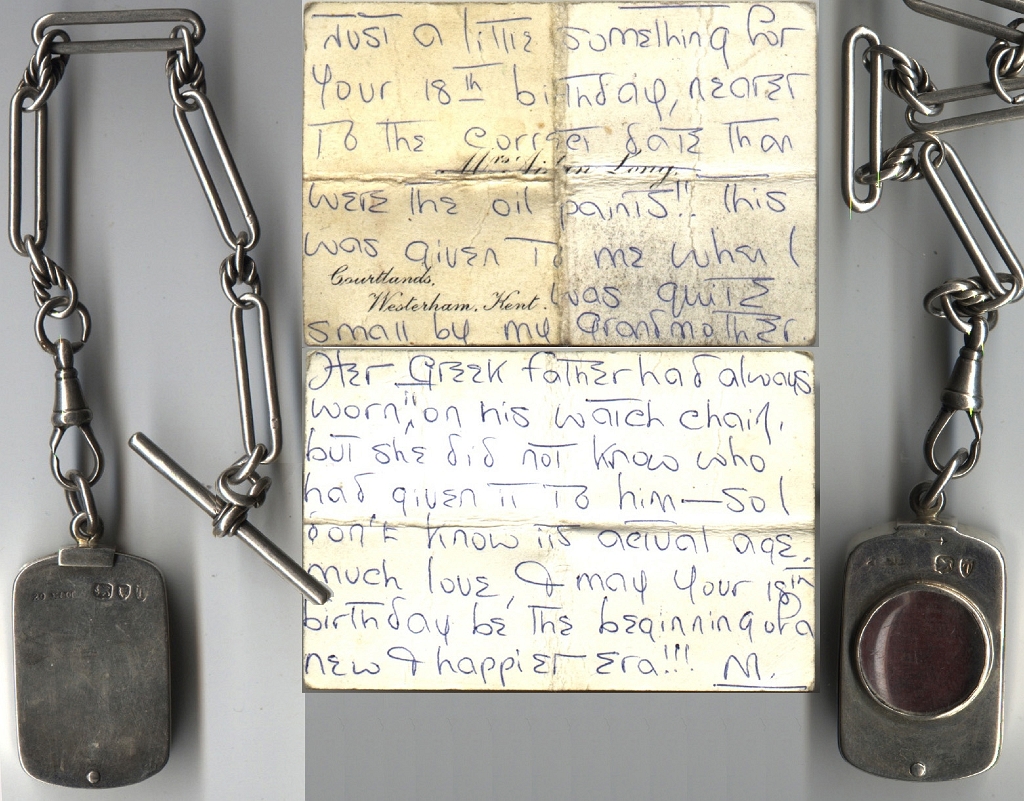 Just a little something for
your 18th birthday, nearer
to the correct date than
Mrs. Long.
were the oil paints!! This
was given to me when I
Courtlands,
Westerham, Kent.
was quite
small by my Grandmother
Her Greek father had always
worn " on his watch chain,
but she did not know who
had given it to him — so I
don't know its actual age.
Much love, & may your 18th
birthday be the beginning of a
new & happier era!!! M.